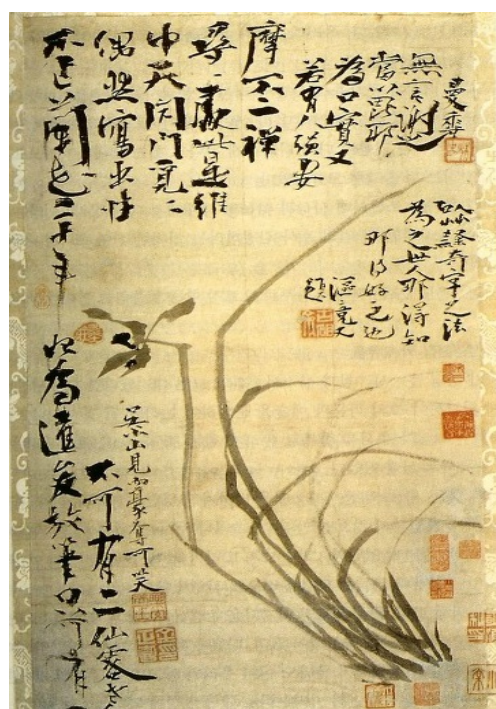 不作蘭花二十年
偶然寫出性
中天閉門覓〻
尋〻處此是維
摩不二禪
若有人强要
爲口實又
當以毘耶
無言謝之
曼香
以草隷奇字之法
爲之世人那得知
那得好之也
漚竟又
題
始爲達俊放筆只可有一
不可有二仙客老
吳小山見而豪奪可笑